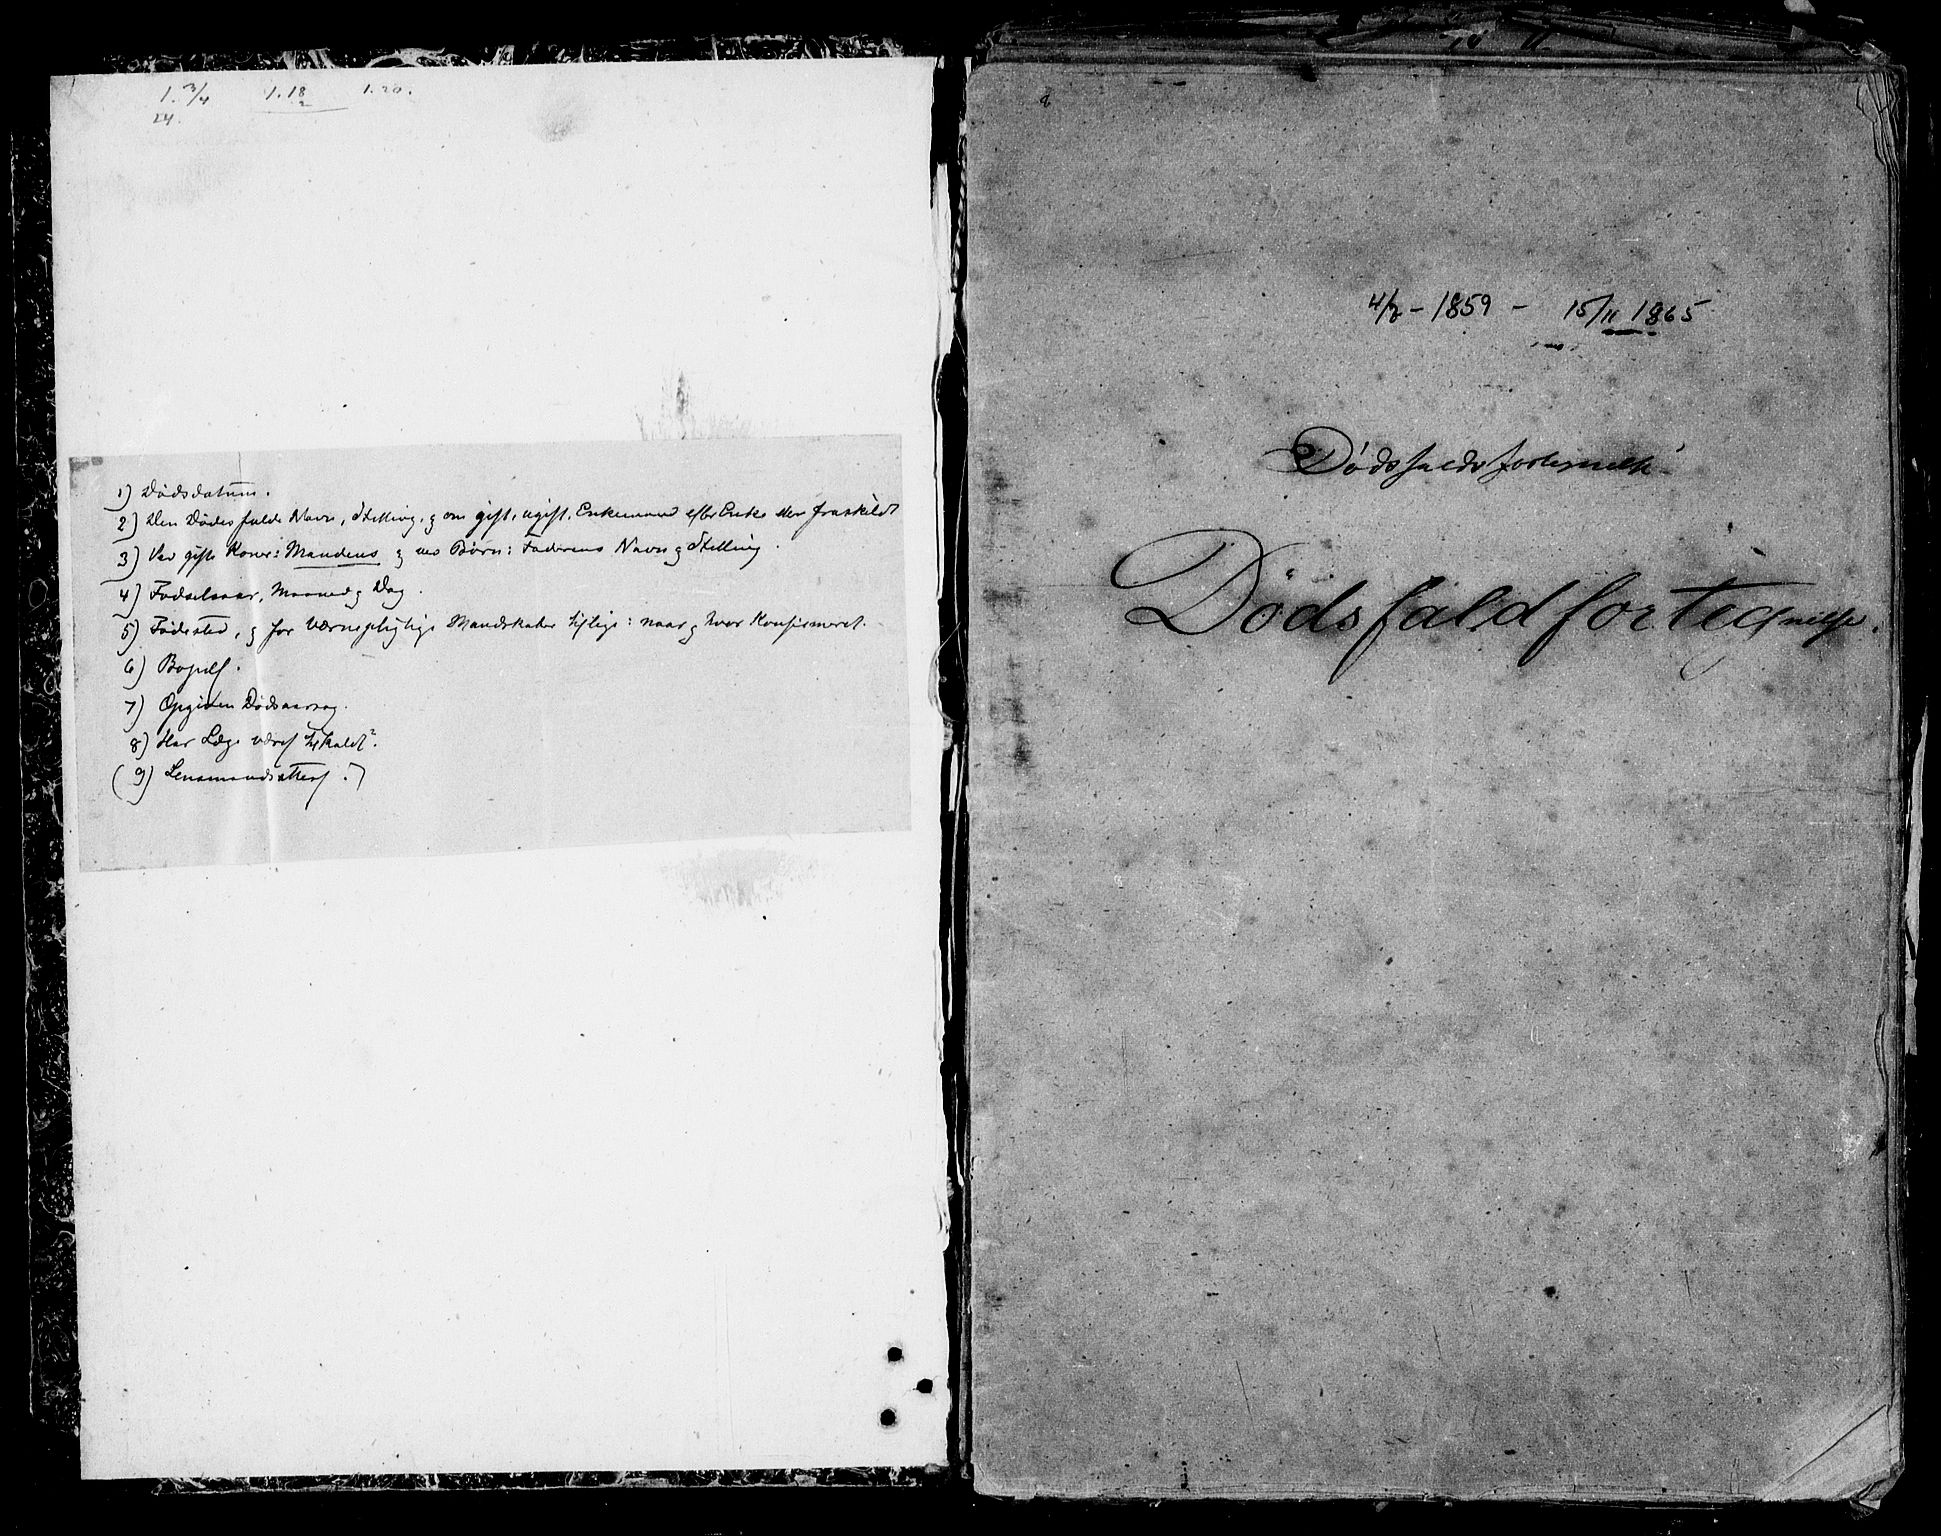 1. 3/4 1. 18/2 1. 20.
24.
1) Dødsdatum.
2) Den Dødes fulde Navn, Stilling, og om gift, ugift, Enkemand eller Enke eller fraskildt
3) Ved gifte Koner: Mandens og ved Børn: Faderens Navn og Stilling.
4) Fødselsaar, Maaned og Dag.
5) Fødested, og for værnepligtige Mandskaber tillige: naar og hvor Konfirmeret.
6) Bopæl.
7) Opgiven Dødsaarsag.
8) Har Læge været tilkaldt?
(9) Lensmandsattest.)
4/8 - 1859 - 15/11 1865
Dødsfalds
Dødsfaldfortegnelse.